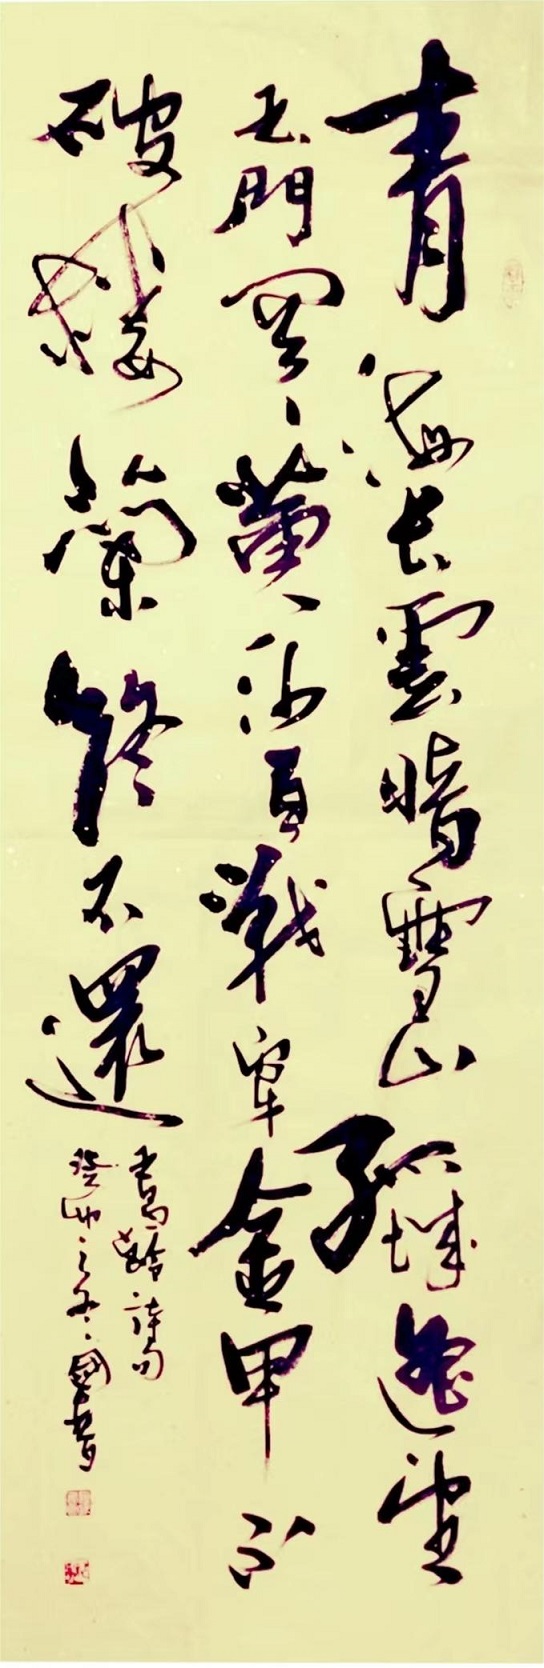 青海长雲暗雪山孤城遥望
玉門關黄沙百戰穿金甲不
破樓蘭終不還
王昌齡詩句
癸酉之冬國